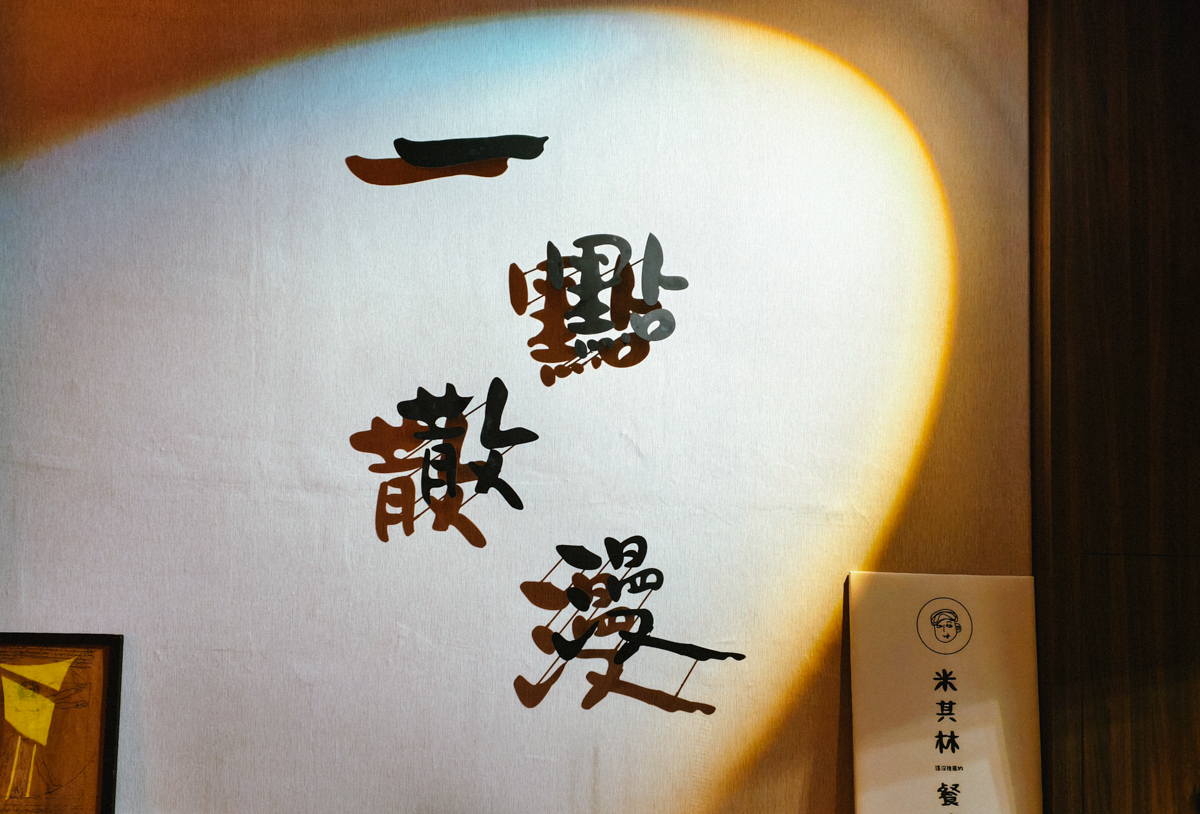 一點散漫
米其林
餐